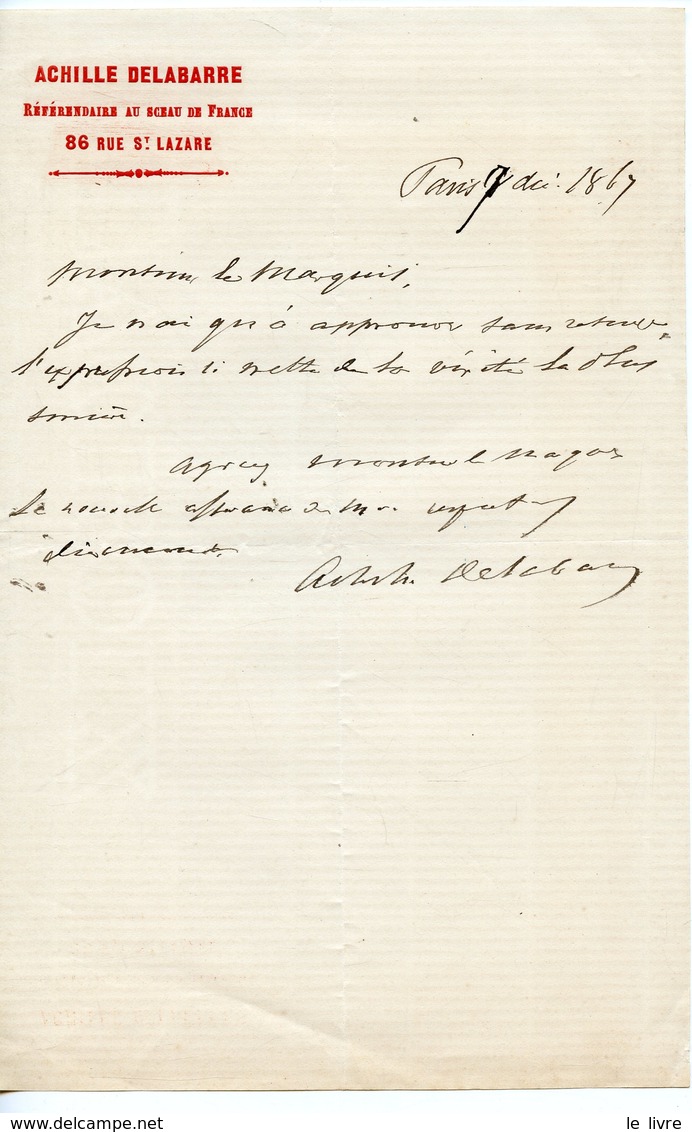 ACHILLE DELABARRE
RÉFÉRENDAIRE AU SCEAU DE FRANCE
86 RUE ST LAZARE
Paris 7 déc. 1867
Monsieur le Marquis,
Je n'ai qu'à approuver sans réserve
l'expression si nette de la vérité la plus
sincère.
Agréez Monsieur le Marquis
la nouvelle assurance de mon respectueux
dévouement.
Achille Delabarre
www.delcampe.net
le livre